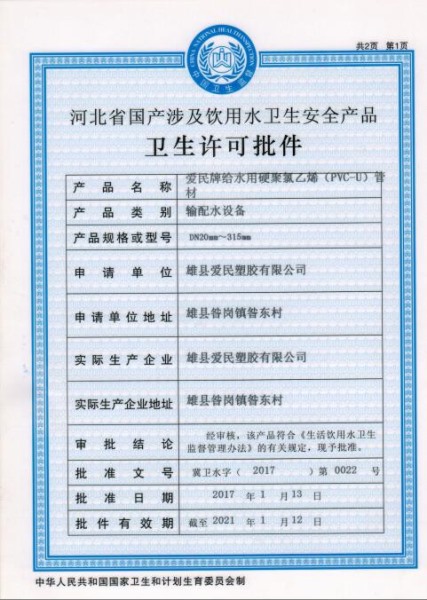 共2页 第1页
河北省国产涉及饮用水卫生安全产品
卫生许可批件
产品名称 爱民牌给水用硬聚氯乙烯（PVC-U）管
材
产品类别 输配水设备
产品规格或型号 DN20mm～315mm
申请单位 雄县爱民塑胶有限公司
申请单位地址 雄县昝岗镇昝东村
实际生产企业 雄县爱民塑胶有限公司
实际生产企业地址 雄县昝岗镇昝东村
审批结论 经审核，该产品符合《生活饮用水卫生
监督管理办法》的有关规定，现予批准。
批准文号 冀卫水字（ 2017 ）第 0022 号
批准日期 2017 年 1 月 13 日
批件有效期 截至 2021 年 1 月 12 日
中华人民共和国国家卫生和计划生育委员会制